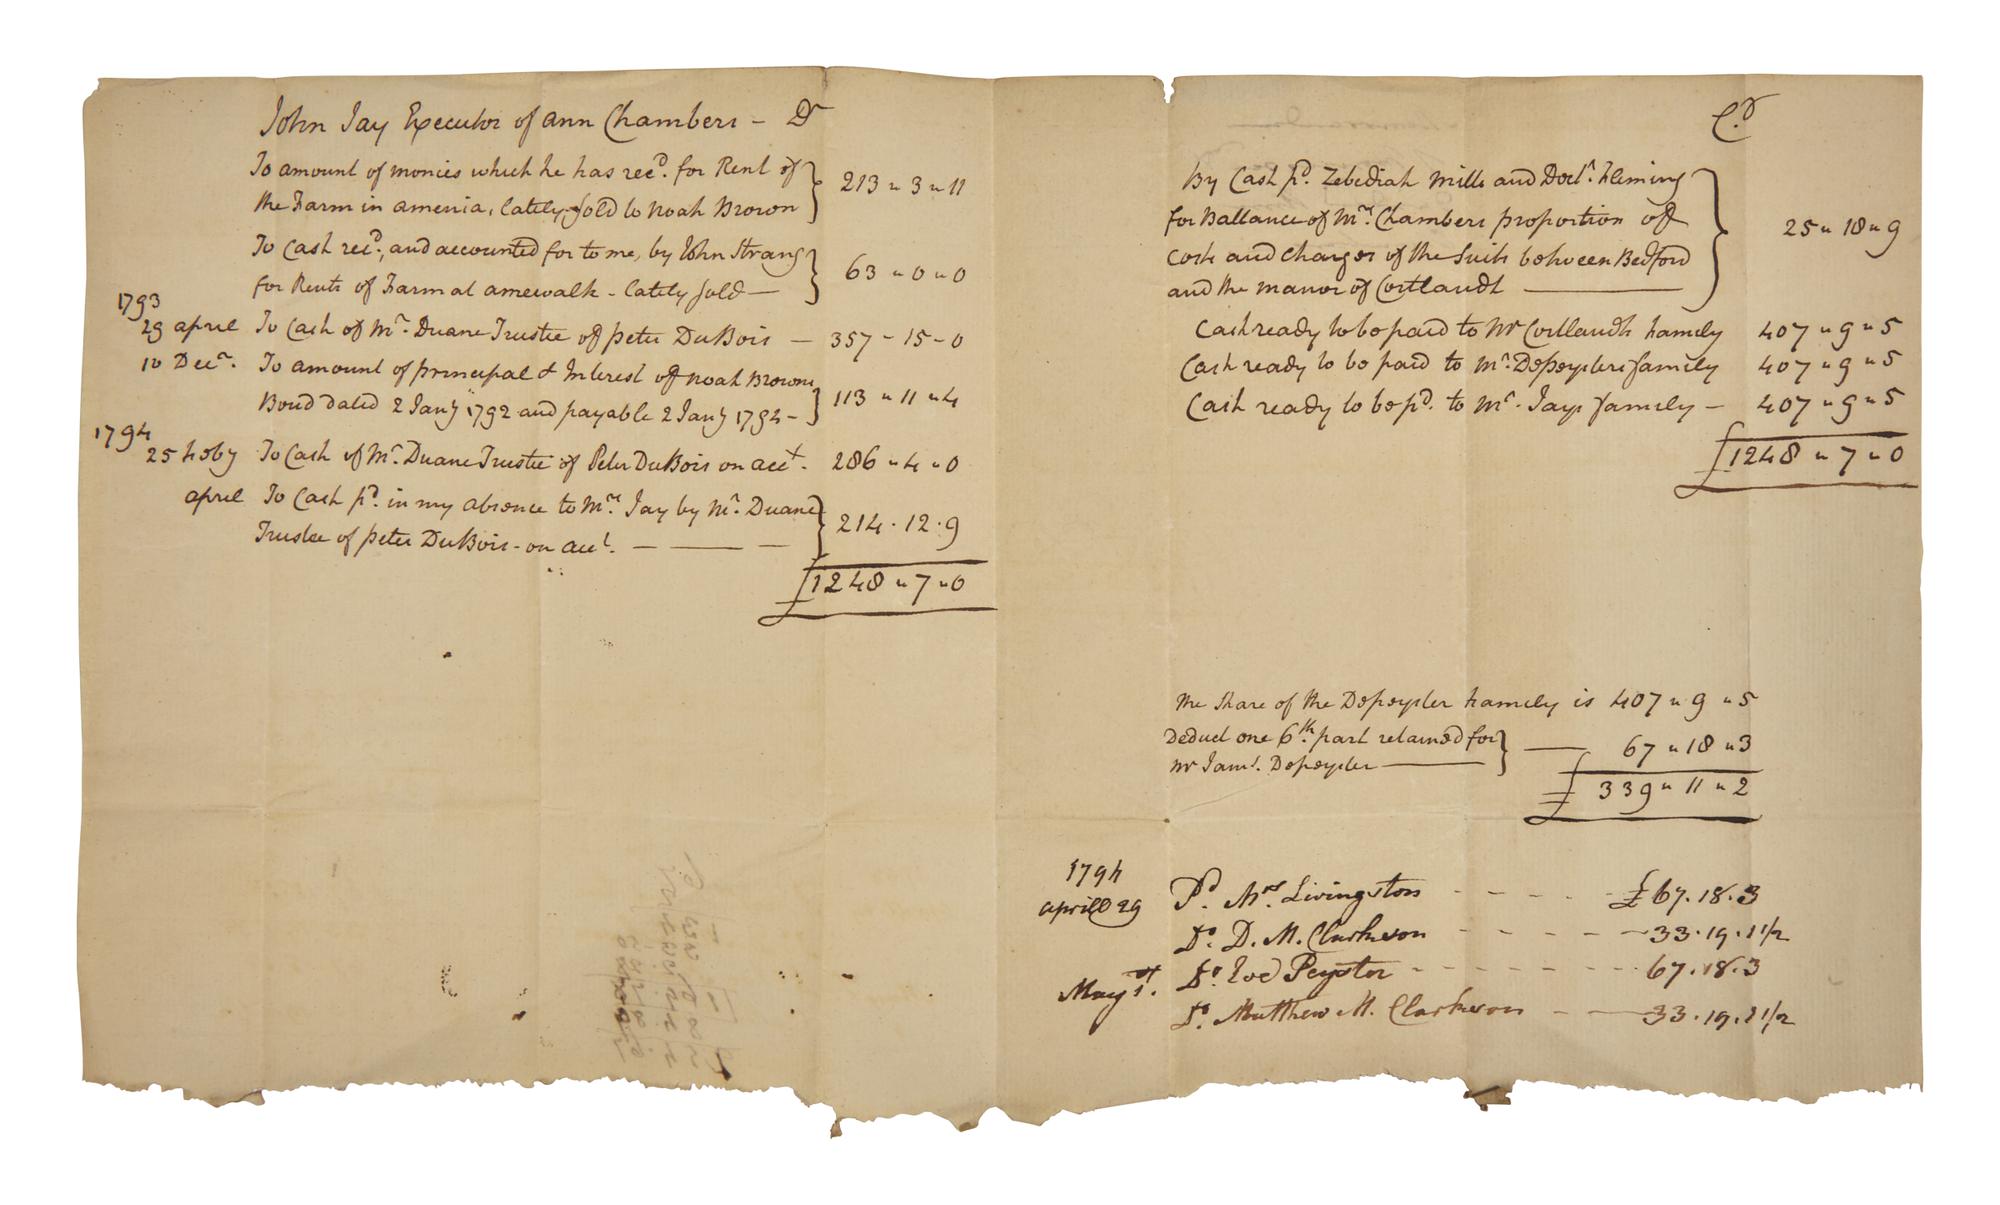 John Jay Executor of ann Chambers – Dr
To amount of monies which he has recd. for Rent of
the Farm in amenia, lately sold to Noah Brown } 213 " 3 " 11
To Cash recd., and accounted for to me, by John Strang
for Rents of Farm at amewalk – lately sold — } 63 " 0 " 0
1793
29 april To Cash of Mr. Duane Trustee of Peter DuBois — 357 – 15 – 0
10 Decr. To amount of principal & Interest of Noah Browns
Bond dated 2 Jany 1792 and payable 2 Jany 1794 – } 113 " 11 " 4
1794
25 Feby To Cash of Mr. Duane Trustee of Peter DuBois on acct. 286 " 4 " 0
april To Cash pd. in my absence to Mrs. Jay by Mr. Duane
Trustee of Peter DuBois – on acct. — — — } 214 . 12 . 9
£1248 " 7 " 0
Cr
By Cash pd. Zebediah Mills and Doctr. Fleming
for Ballance of Mrs. Chambers proportion of
costs and charges of the Suits between Bedford
and the manor of Cortlandt ——— } 25 " 18 " 9
Cash ready to be paid to Mr Cortlandts Family 407 " 9 " 5
Cash ready to be paid to Mr. Depeysters family 407 " 9 " 5
Cash ready to be pd. to Mr. Jays family – 407 " 9 " 5
£1248 " 7 " 0
the Share of the Depeyster Family is 407 " 9 " 5
Deduct one 6th. part retained for
Mr Jams. Depeyster ——— } — 67 " 18 " 3
£ 339 " 11 " 2
1794
aprill 29 Pd. Mrs. Livingston - - - - £67.18.3
Do. D. M. Clarkson - - - - 33.19.1 1/2
May 1st. Do. Eve Peyster - - - - 67.18.3
Do. Matthew M. Clarkson - — 33.19.1 1/2